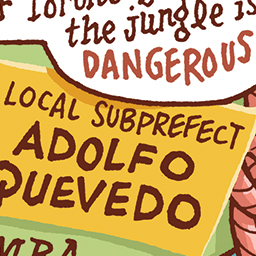 the jungle is
DANGEROUS
LOCAL SUBPREFECT
ADOLFO
QUEVEDO